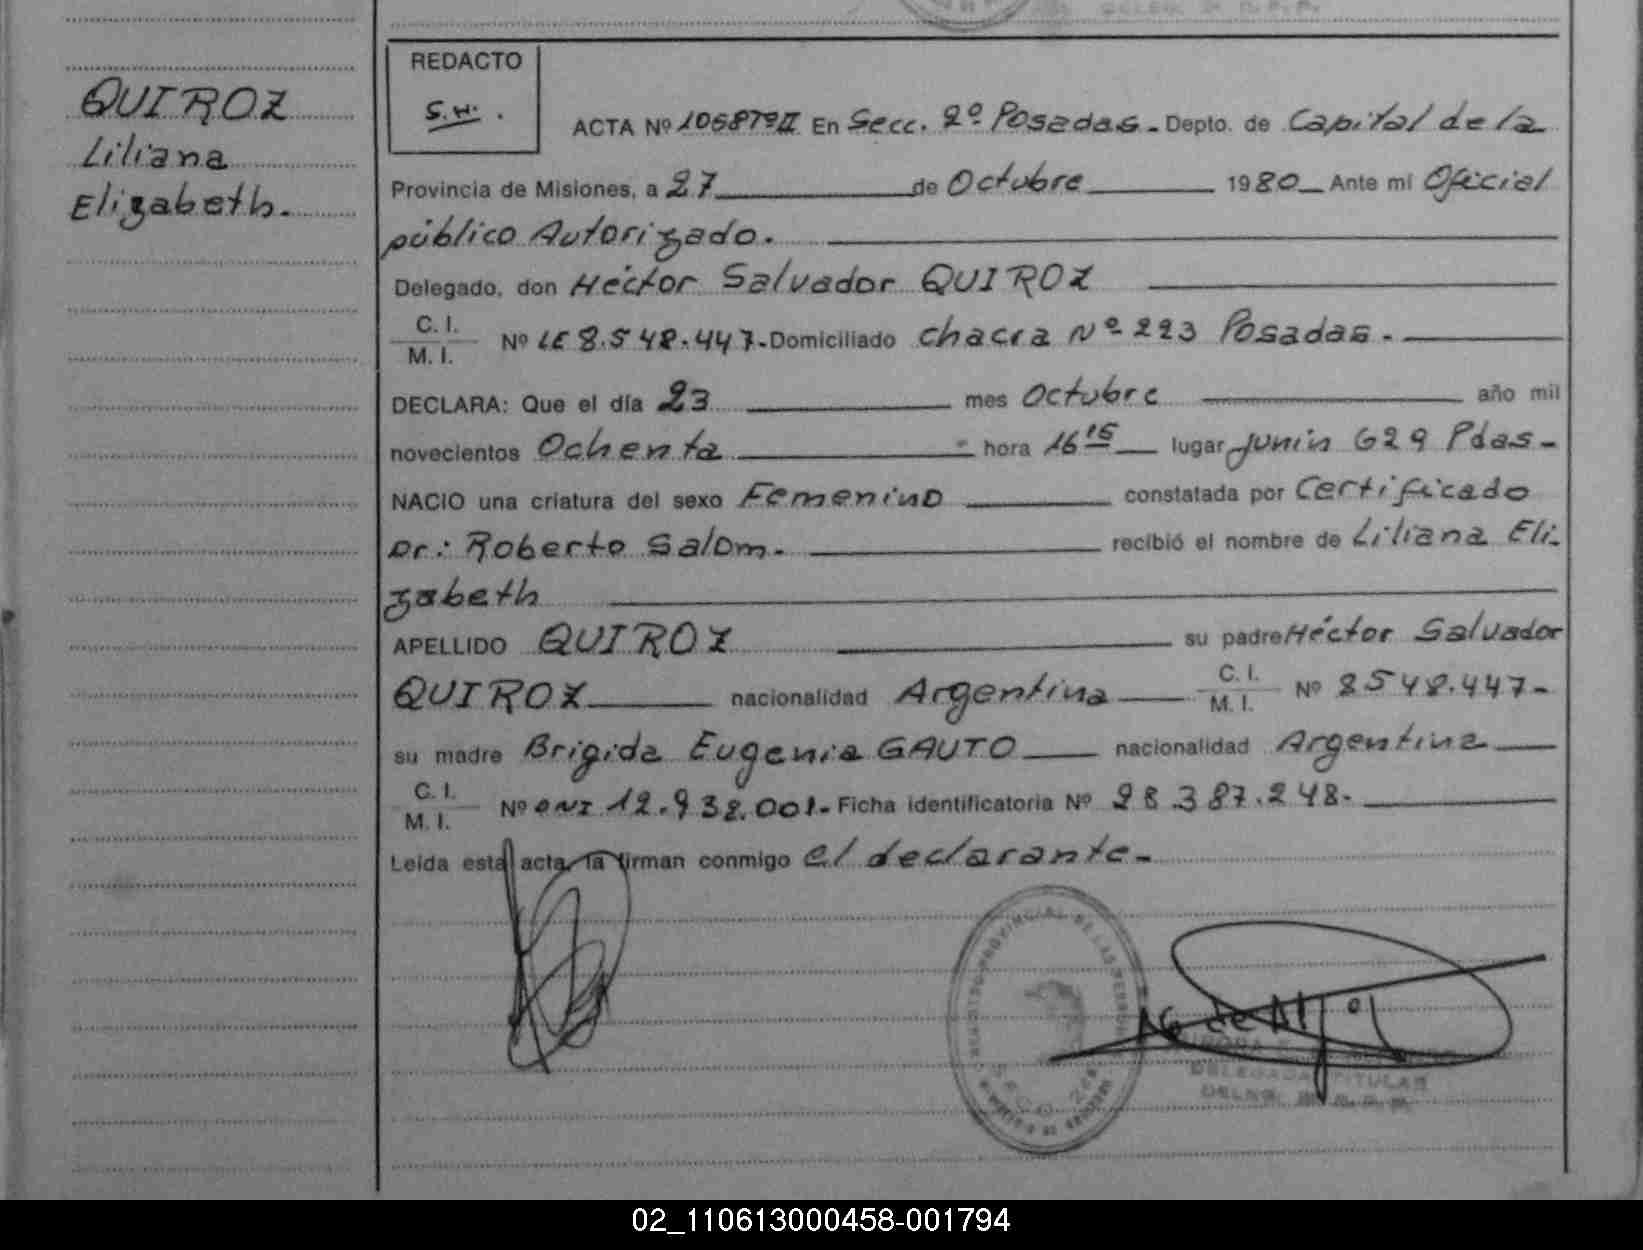 QUIROZ
Liliana
Elizabeth.
REDACTO
S.H.
ACTA Nº 1068 Tº II En Secc. 2º Posadas. Depto. de Capital de la
Provincia de Misiones, a 27 de Octubre 1980 Ante mi Oficial
público Autorizado.
Delegado, don Héctor Salvador QUIROZ
C. I.
M. I. Nº LE 8.548.447. Domiciliado chacra Nº 223 Posadas.
DECLARA: Que el día 23 mes Octubre año mil
novecientos Ochenta hora 16 15 lugar Junín 629 Pdas.
NACIO una criatura del sexo Femenino constatada por Certificado
Dr.: Roberto Salom. recibió el nombre de Liliana Eli
zabeth
APELLIDO QUIROZ su padre Héctor Salvador
QUIROZ nacionalidad Argentina C. I. M. I. Nº 8548.447-
su madre Brígida Eugenia GAUTO nacionalidad Argentina
C. I.
M. I. Nº DNI 12.938.001. Ficha identificatoria Nº 28.387.248.
Leída esta acta, la firman conmigo el declarante.
DELEGADA TITULAR
02_110613000458-001794